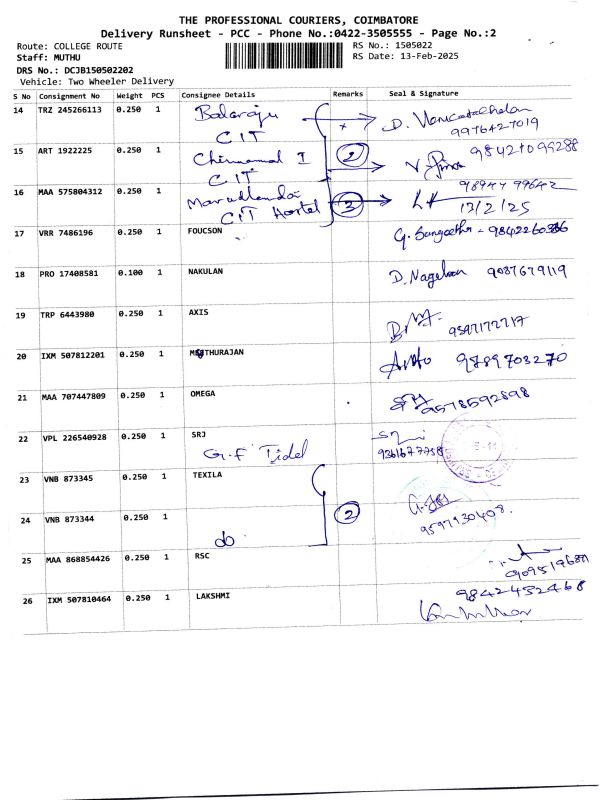 THE PROFESSIONAL COURIERS, COIMBATORE
Delivery Runsheet - PCC - Phone No.:0422-3505555 - Page No.:2
Route: COLLEGE ROUTE RS No.: 1505022
Staff: MUTHU RS Date: 13-Feb-2025
DRS No.: DCJB150502202
Vehicle: Two Wheeler Delivery
S No Consignment No Weight PCS Consignee Details Remarks Seal & Signature
14 TRZ 245266113 0.250 1 Balaraju
CIT 9976427019
15 ART 1922225 0.250 1 Chinnamal I 2 98421099288
CIT
16 MAA 575804312 0.250 1 3 98947 99642
CIT Hostel 13/2/25
17 VRR 7486196 0.250 1 FOUCSON
18 PRO 17408581 0.100 1 NAKULAN 9087679119
19 TRP 6443980 0.250 1 AXIS
20 IXM 507812201 0.250 1 9789703270
21 MAA 707447809 0.250 1 OMEGA 9578592898
22 VPL 226540928 0.250 1 SRJ
G.F Tidel 9361677758
23 VNB 873345 0.250 1 TEXILA
24 VNB 873344 0.250 1 2 9597930408.
do
25 MAA 868854426 0.250 1 RSC
26 IXM 507810464 0.250 1 LAKSHMI 9842452468